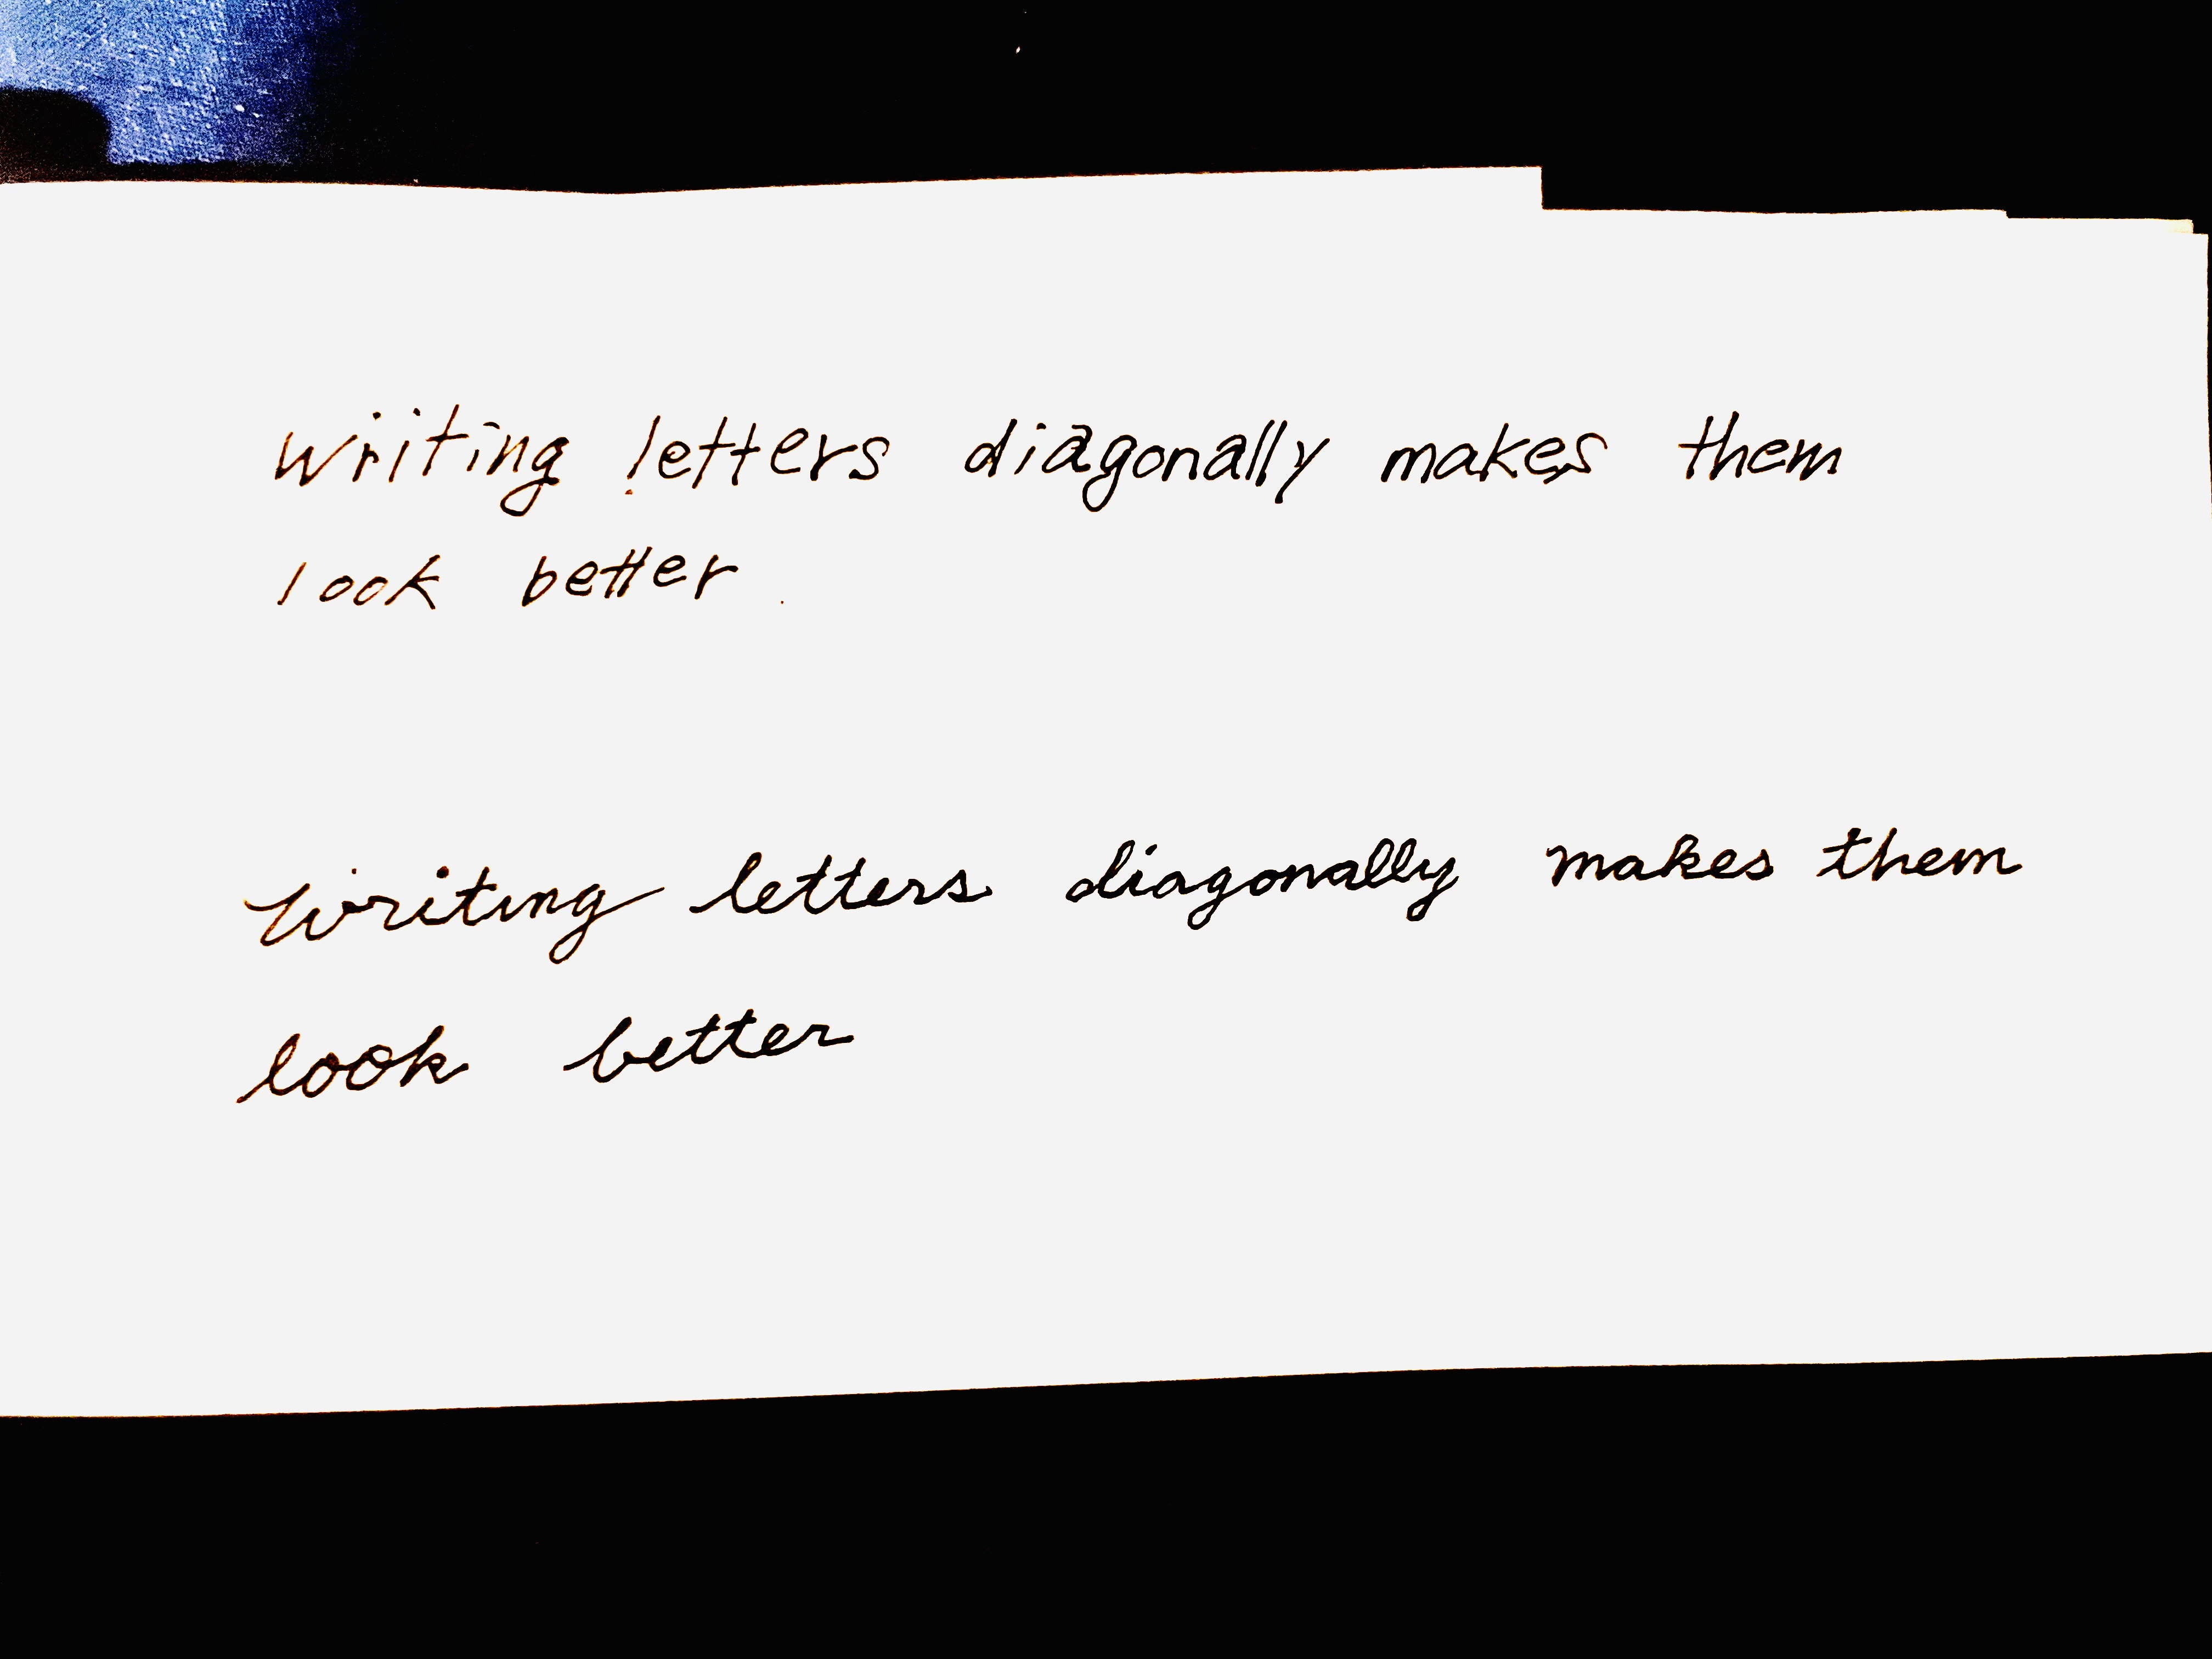 Writing letters diagonally makes them
look better.
Writing letters diagonally makes them
look better